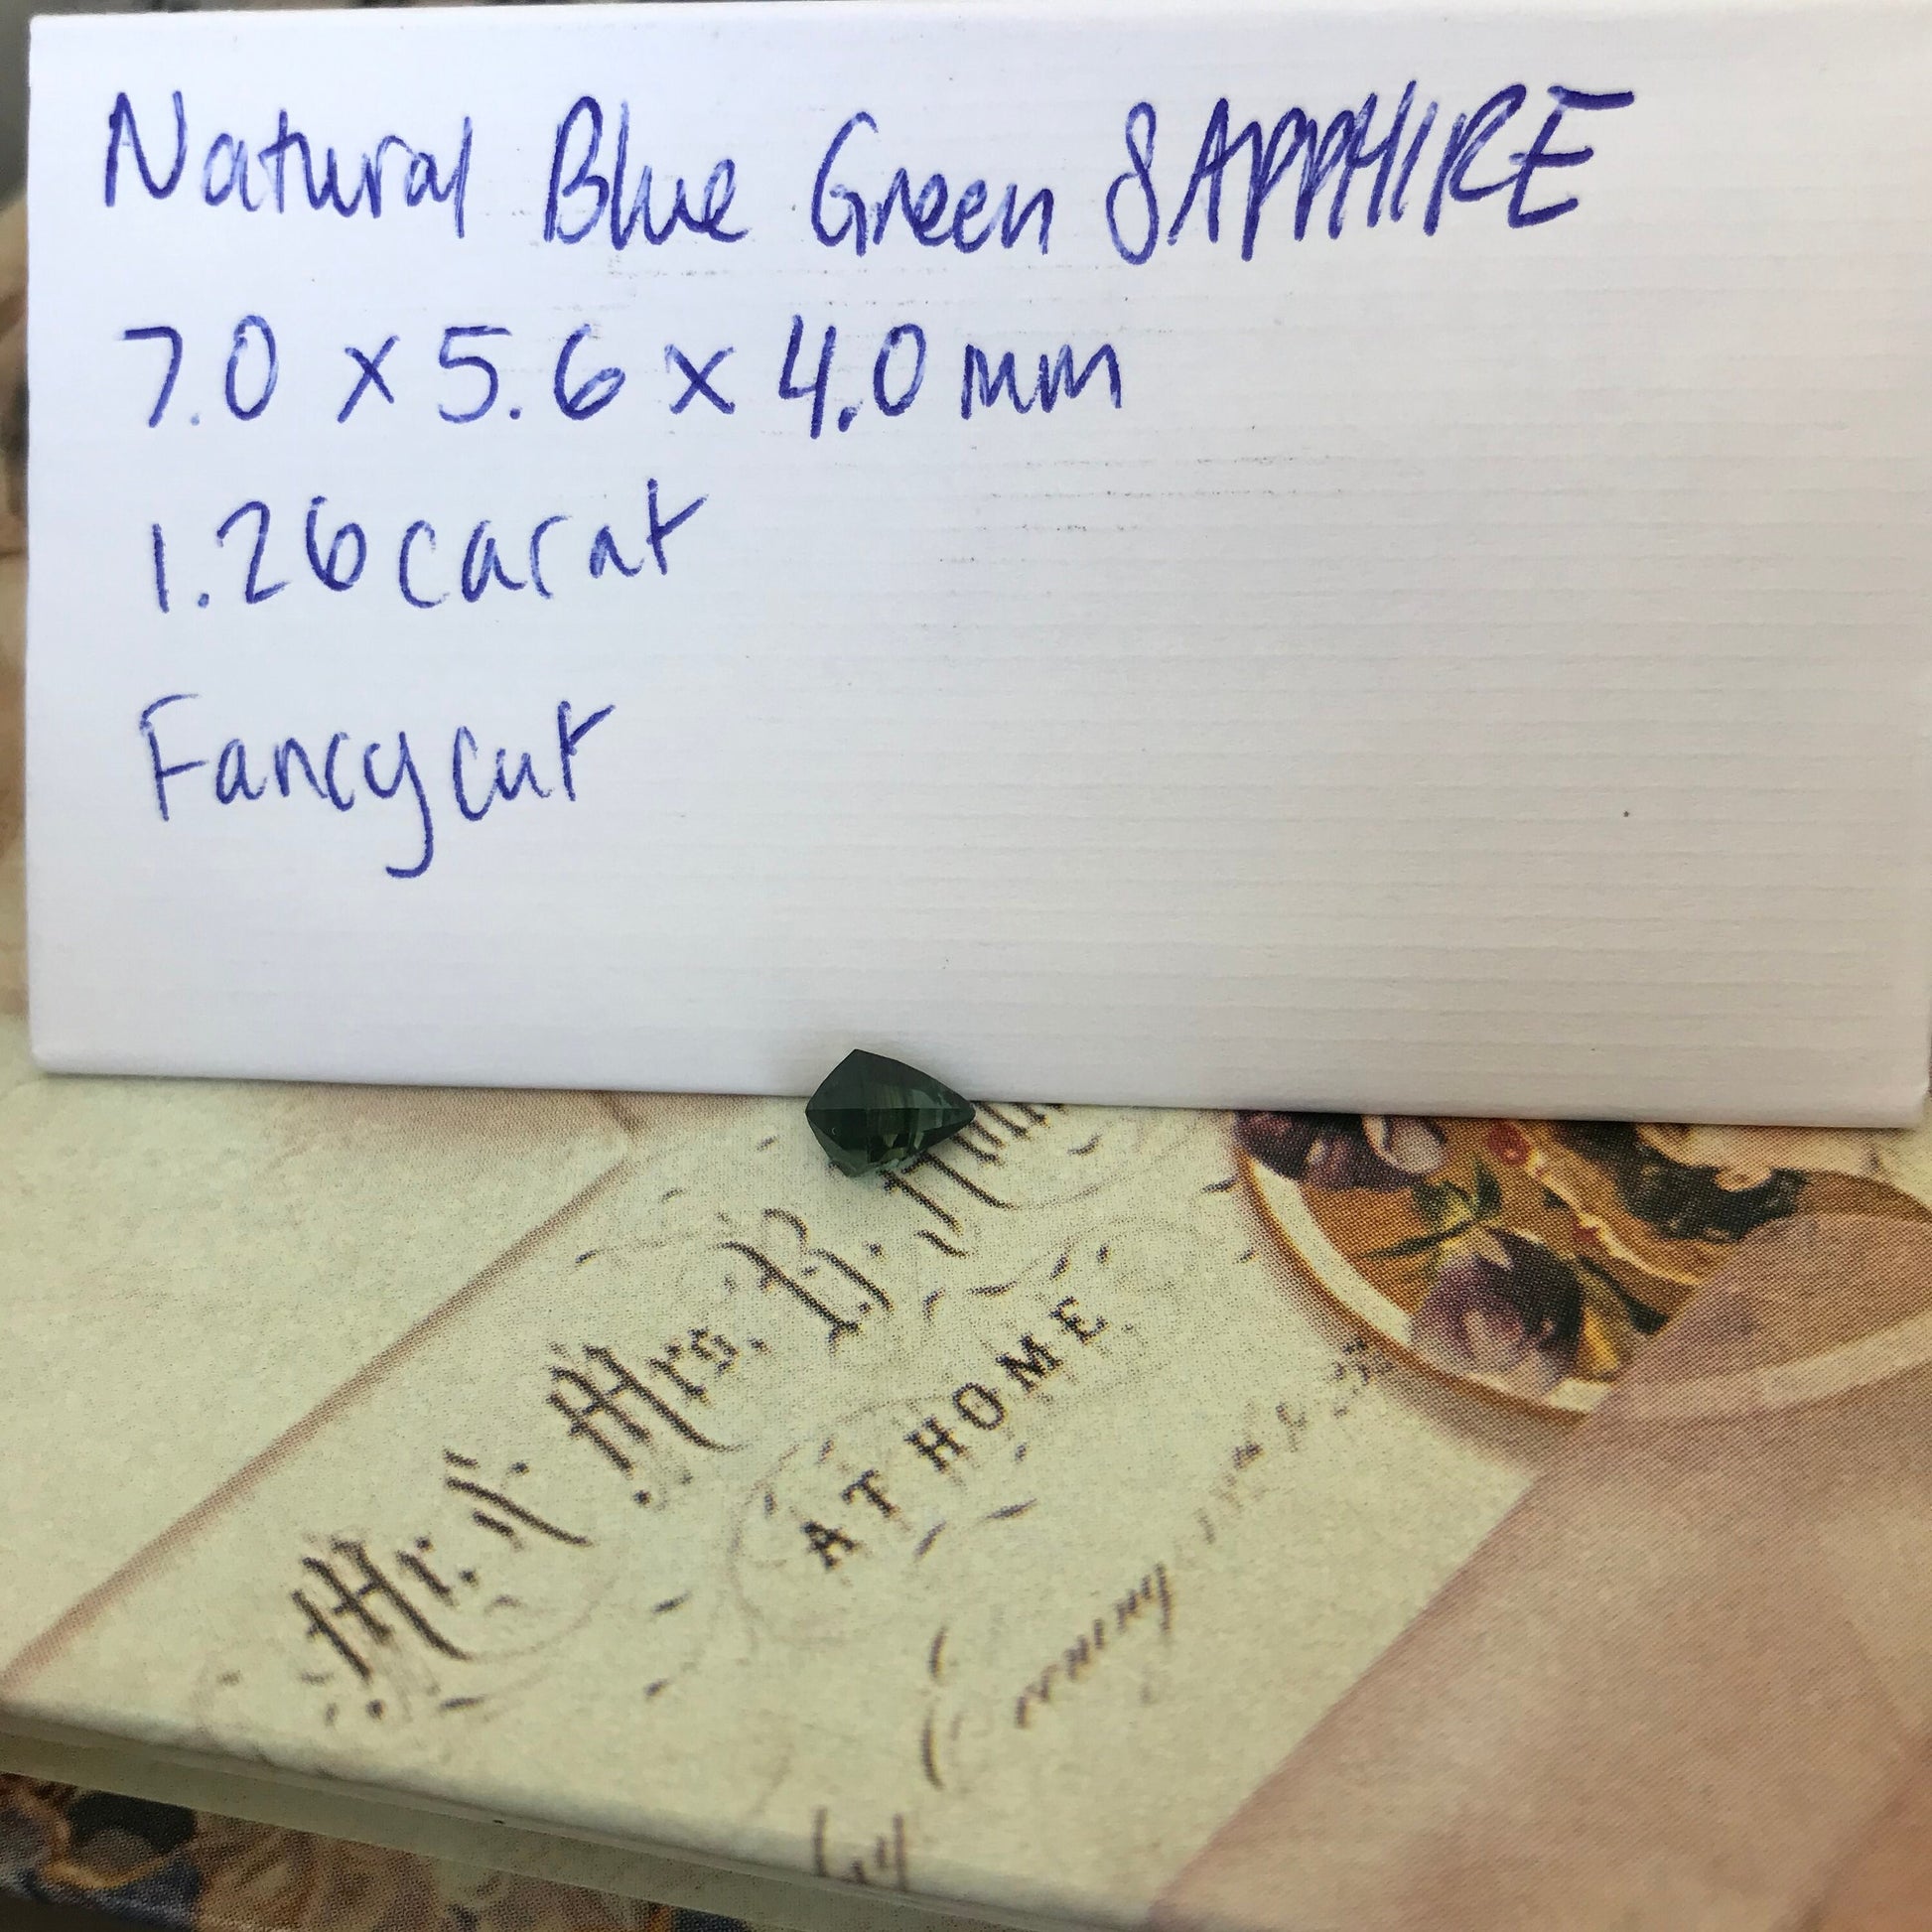 Natural Blue Green SAPPHIRE
7.0 x 5.6 x 4.0 mm
1.26 carat
Fancy cut
Mr. & Mrs. B.
AT HOME
Evening